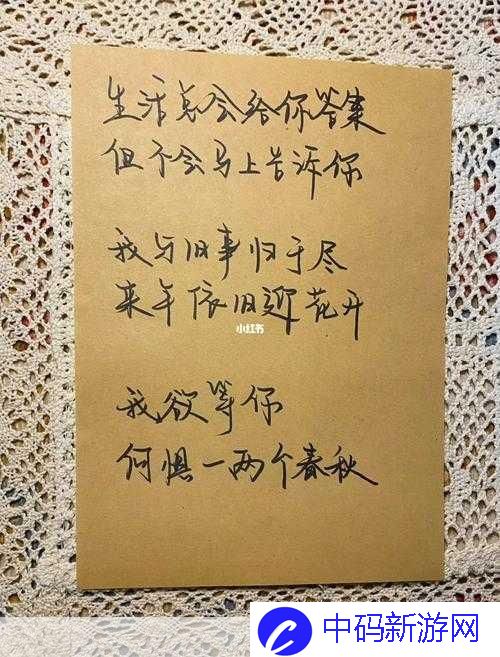 生活总会给你答案
但不会马上告诉你
我与旧事归于尽
来年依旧迎花开
小红书
我欲等你
何惧一两个春秋
中码新游网